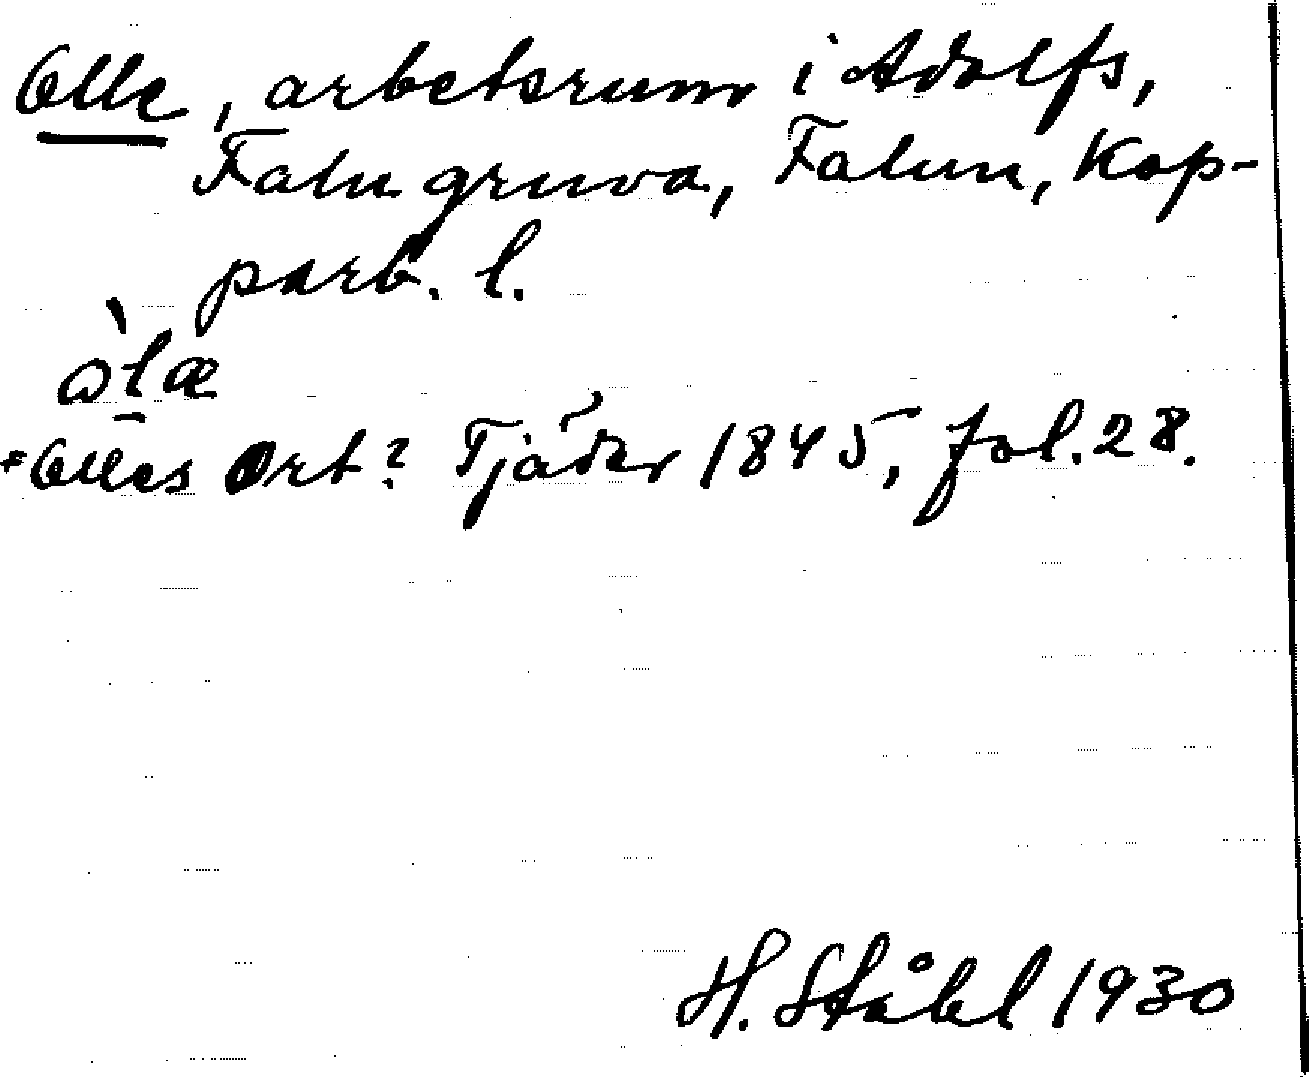 Olle, arbetsrum i Adolfs,
Falu gruva, Falun, Kop-
parb. l.
òlæ
Olles Ort? Tjäder 1845, fol. 28.
H. Ståhl 1930